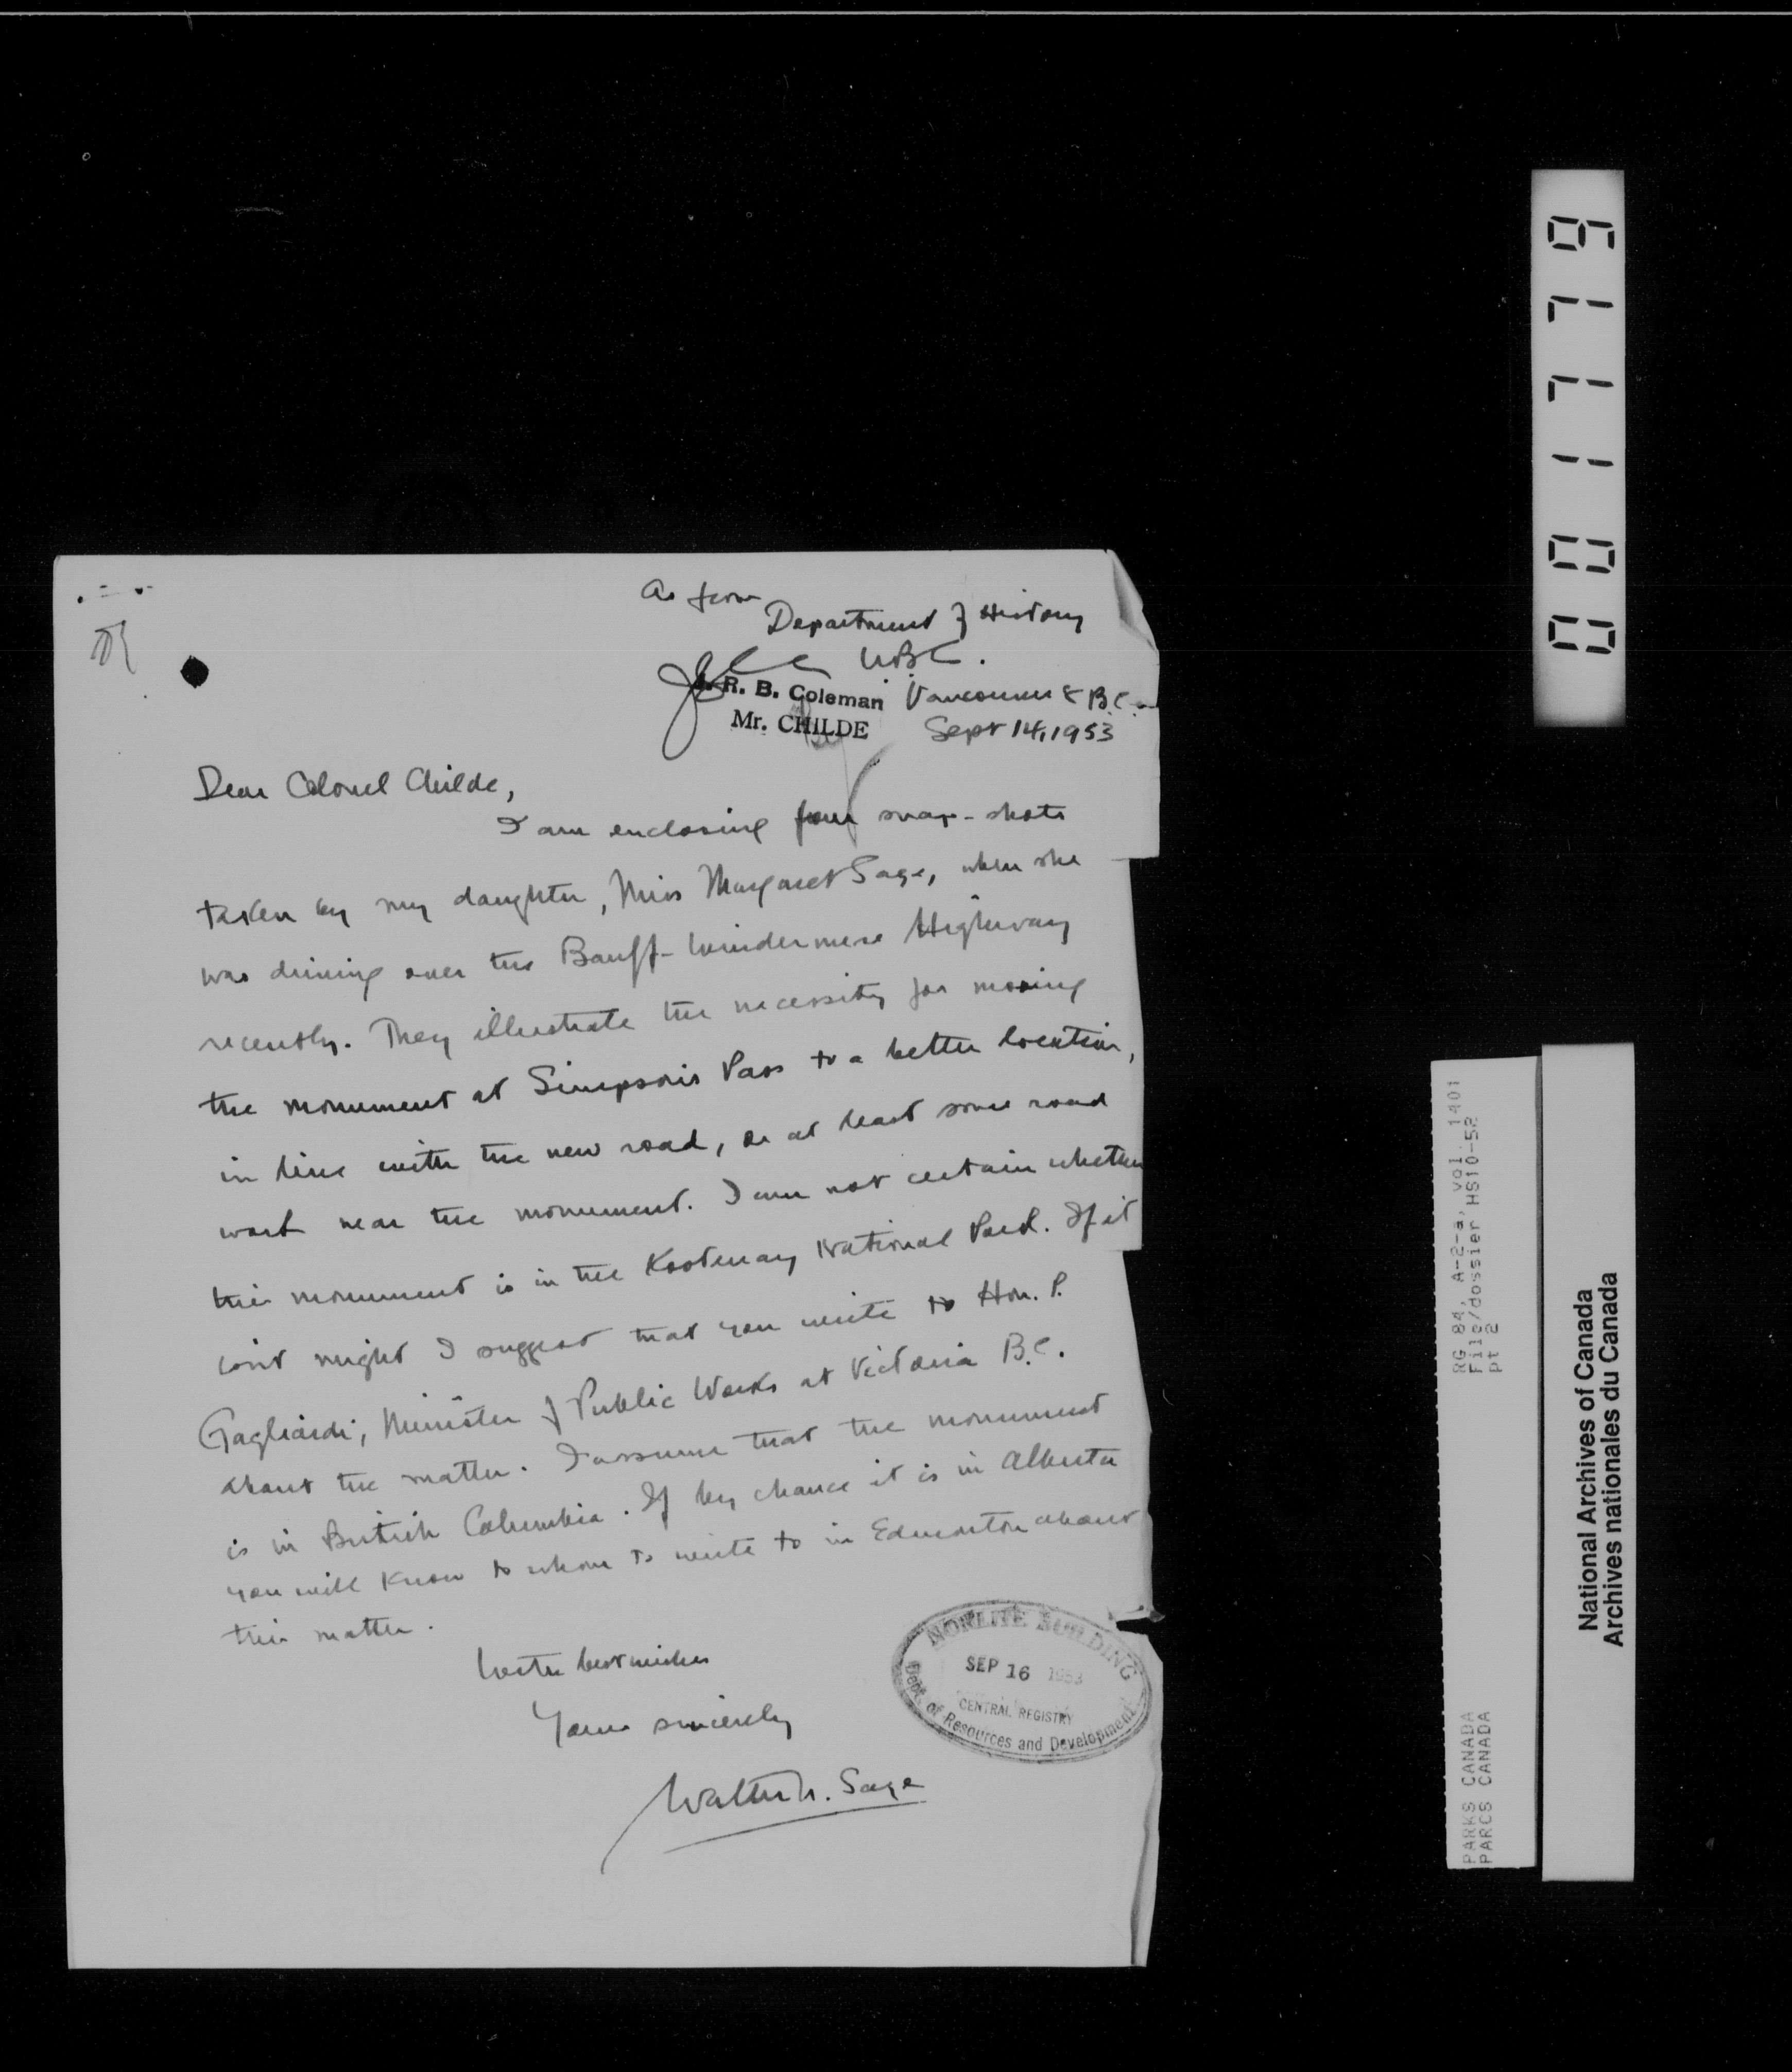 As from
Department of History
U.B.C.
J. R. B. Coleman
Vancouver 8 B.C.
Mr. CHILDE
Sept 14, 1953
Dear Colonel Childe,
I am enclosing four snap-shots
taken by my daughter, Miss Margaret Sage, when she
was driving over the Banff-Windermere Highway
recently. They illustrate the necessity for moving
the monument at Simpson's Pass to a better location,
in line with the new road, or at least some road
work near the monument. I am not certain whether
this monument is in the Kootenay National Park. If it
isn't might I suggest that you write to Hon. P.
Gagliardi, Minister of Public Works at Victoria B.C.
about the matter. I assume that the monument
is in British Columbia. If by chance it is in Alberta
you will know to whom to write to in Edmonton about
this matter.
With best wishes
Yours sincerely
Walter N. Sage
NORLITE BUILDING
SEP 16 1953
CENTRAL REGISTRY
Dept. of Resources and Development
001779
RG 84, A-2-a, vol. 1401
File/dossier HS10-52
pt 2
PARKS CANADA
PARCS CANADA
National Archives of Canada
Archives nationales du Canada